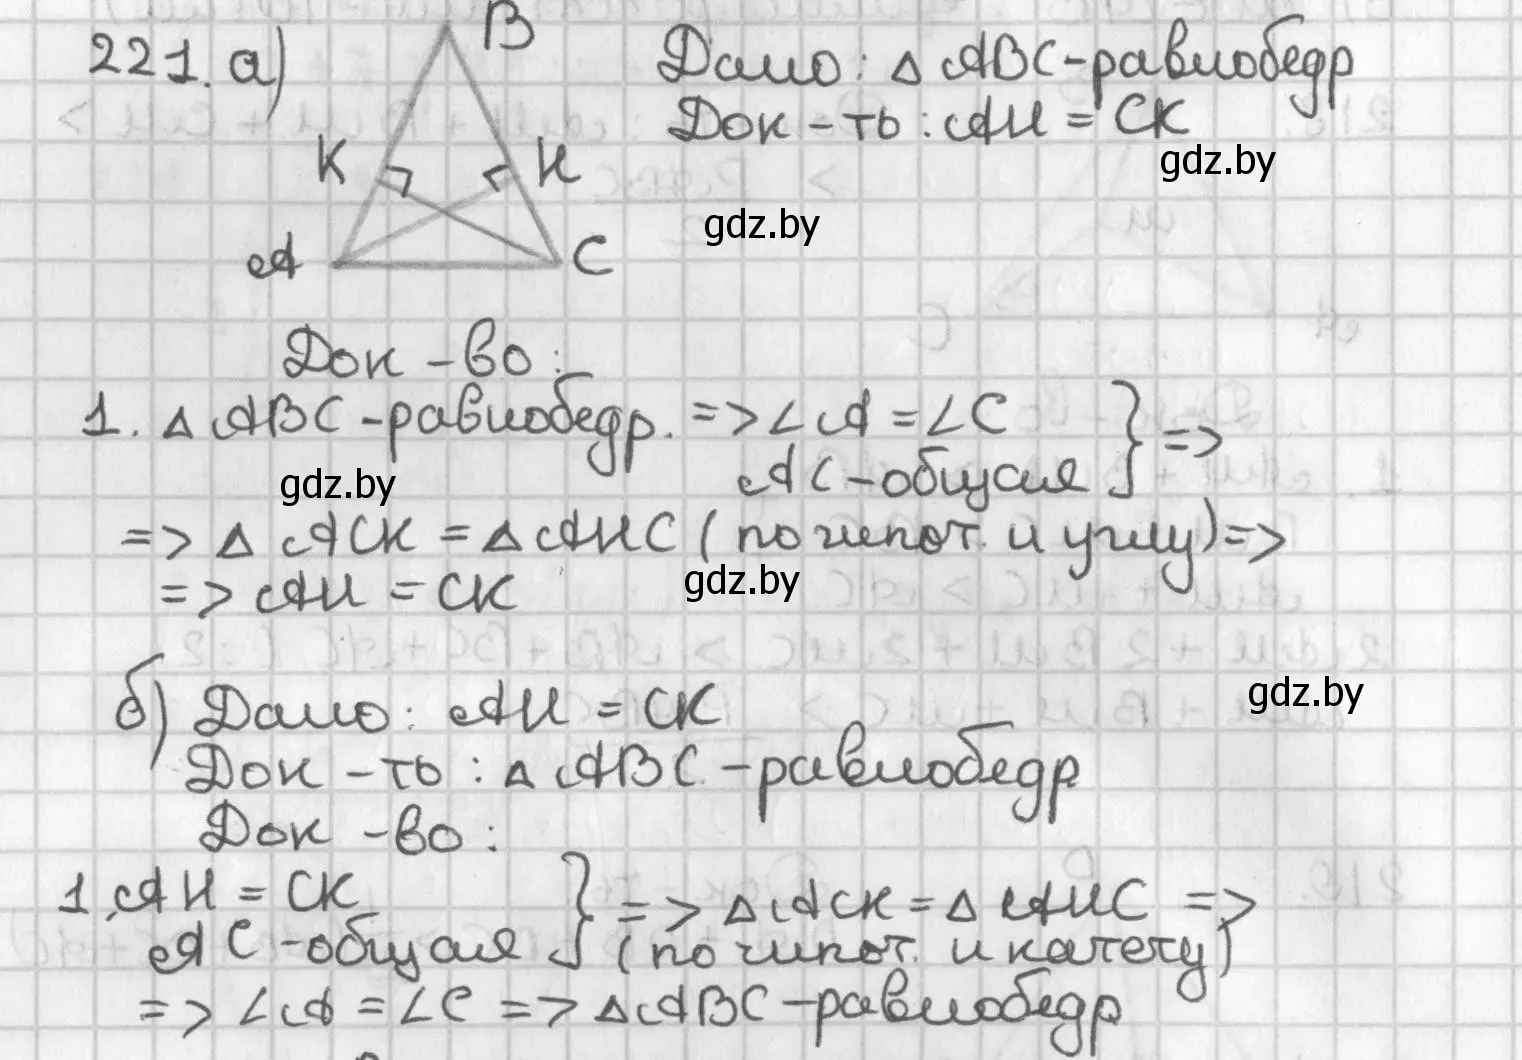 221. а)
B
K
H
A
C
Дано: △ ABC - равнобедр
Док - ть: AH = CK
gdz.by
gdz.by
Док - во:
1. △ ABC - равнобедр. => ∠A = ∠C } =>
AC - общая
gdz.by
=> △ ACK = △ AHC (по гипот. и углу) =>
gdz.by
=> AH = CK
б) Дано: AH = CK
gdz.by
Док - ть: △ ABC - равнобедр
Док - во:
1. AH = CK } => △ ACK = △ AHC =>
AC - общая (по гипот. и катету)
=> ∠A = ∠C => △ ABC - равнобедр